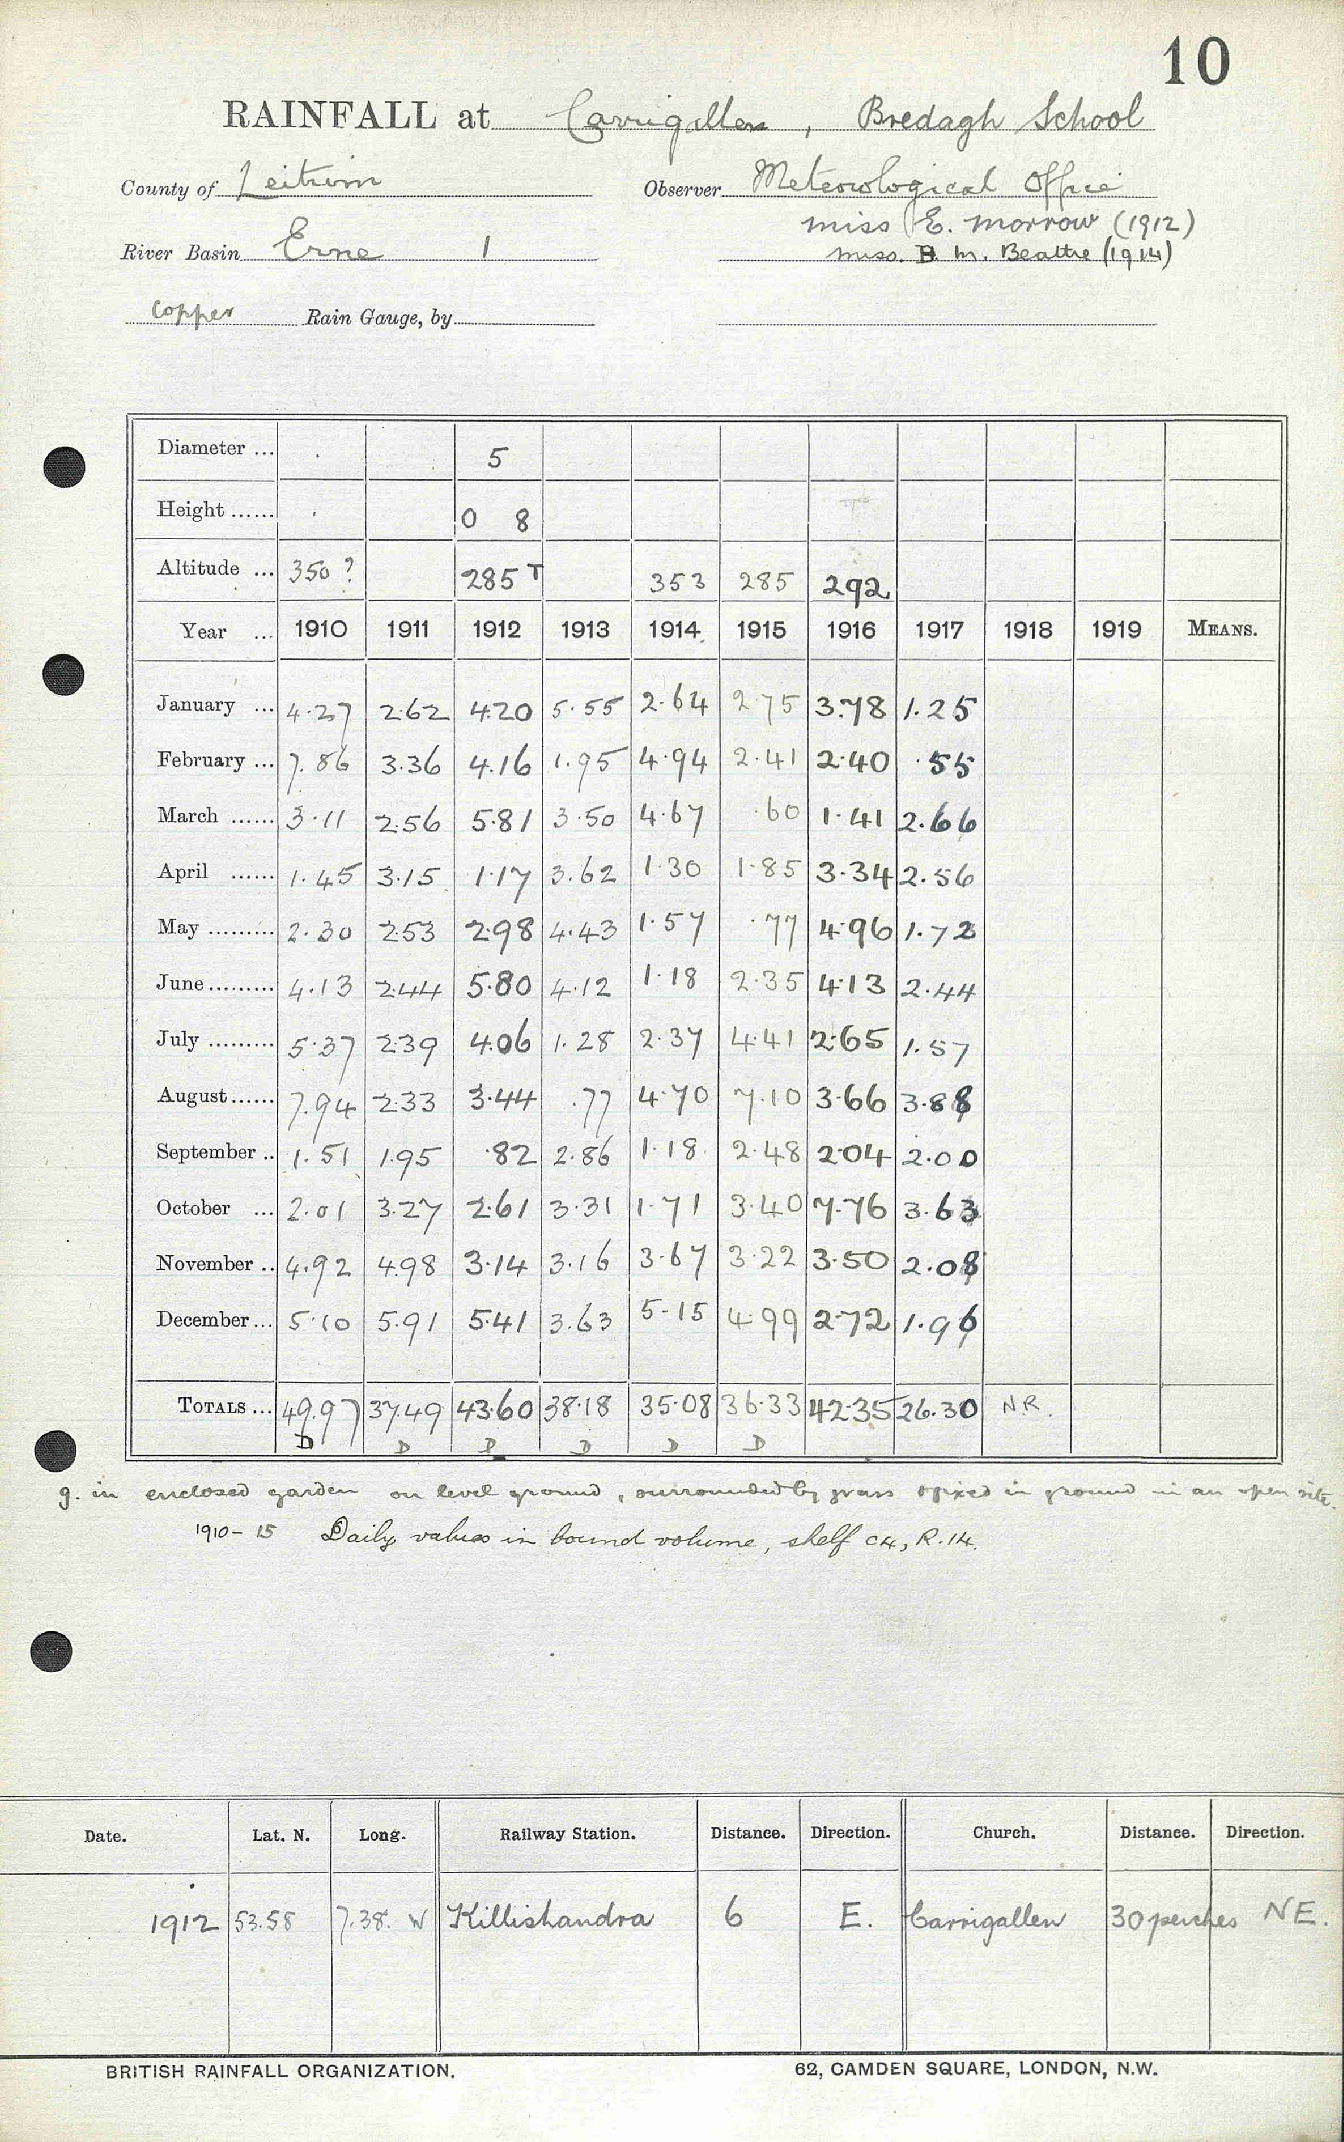 10
RAINFALL at Carrigallen, Bredagh School
County of Leitrim Observer Meteorological Office
Miss E. Morrow (1912)
River Basin Erne 1 Miss. B M. Beattie (1914)
Copper Rain Gauge, by
Diameter ... 5
Height ...... 0 8
Altitude ... 350? 285 T 353 285 292
Year ... 1910 1911 1912 1913 1914 1915 1916 1917 1918 1919 MEANS.
January ... 4.27 2.62 4.20 5.55 2.64 2.75 3.78 1.25
February ... 7.86 3.36 4.16 1.95 4.94 2.41 2.40 .55
March ...... 3.11 2.56 5.81 3.50 4.67 .60 1.41 2.66
April ...... 1.45 3.15 1.17 3.62 1.30 1.85 3.34 2.56
May ......... 2.30 2.53 2.98 4.43 1.57 .77 4.96 1.72
June ......... 4.13 2.44 5.80 4.12 1.18 2.35 4.13 2.44
July ......... 5.37 2.39 4.06 1.28 2.37 4.41 2.65 1.57
August ...... 7.94 2.33 3.44 .77 4.70 7.10 3.66 3.88
September .. 1.51 1.95 .82 2.86 1.18 2.48 2.04 2.00
October ... 2.01 3.27 2.61 3.31 1.71 3.40 7.76 3.63
November .. 4.92 4.98 3.14 3.16 3.67 3.22 3.50 2.08
December ... 5.10 5.91 5.41 3.63 5.15 4.99 2.72 1.96
TOTALS ... 49.97 37.49 43.60 38.18 35.08 36.33 42.35 26.30 N.R.
D D D D D D
g. in enclosed garden on level ground, surrounded by grass & fixed in ground in an open site.
1910-15 Daily values in bound volume, shelf C4, R.14.
Date. Lat. N. Long. Railway Station. Distance. Direction. Church. Distance. Direction.
1912 53.58 7.38. W Killishandra 6 E. Carrigallen 30 perches NE.
BRITISH RAINFALL ORGANIZATION. 62, CAMDEN SQUARE, LONDON, N.W.